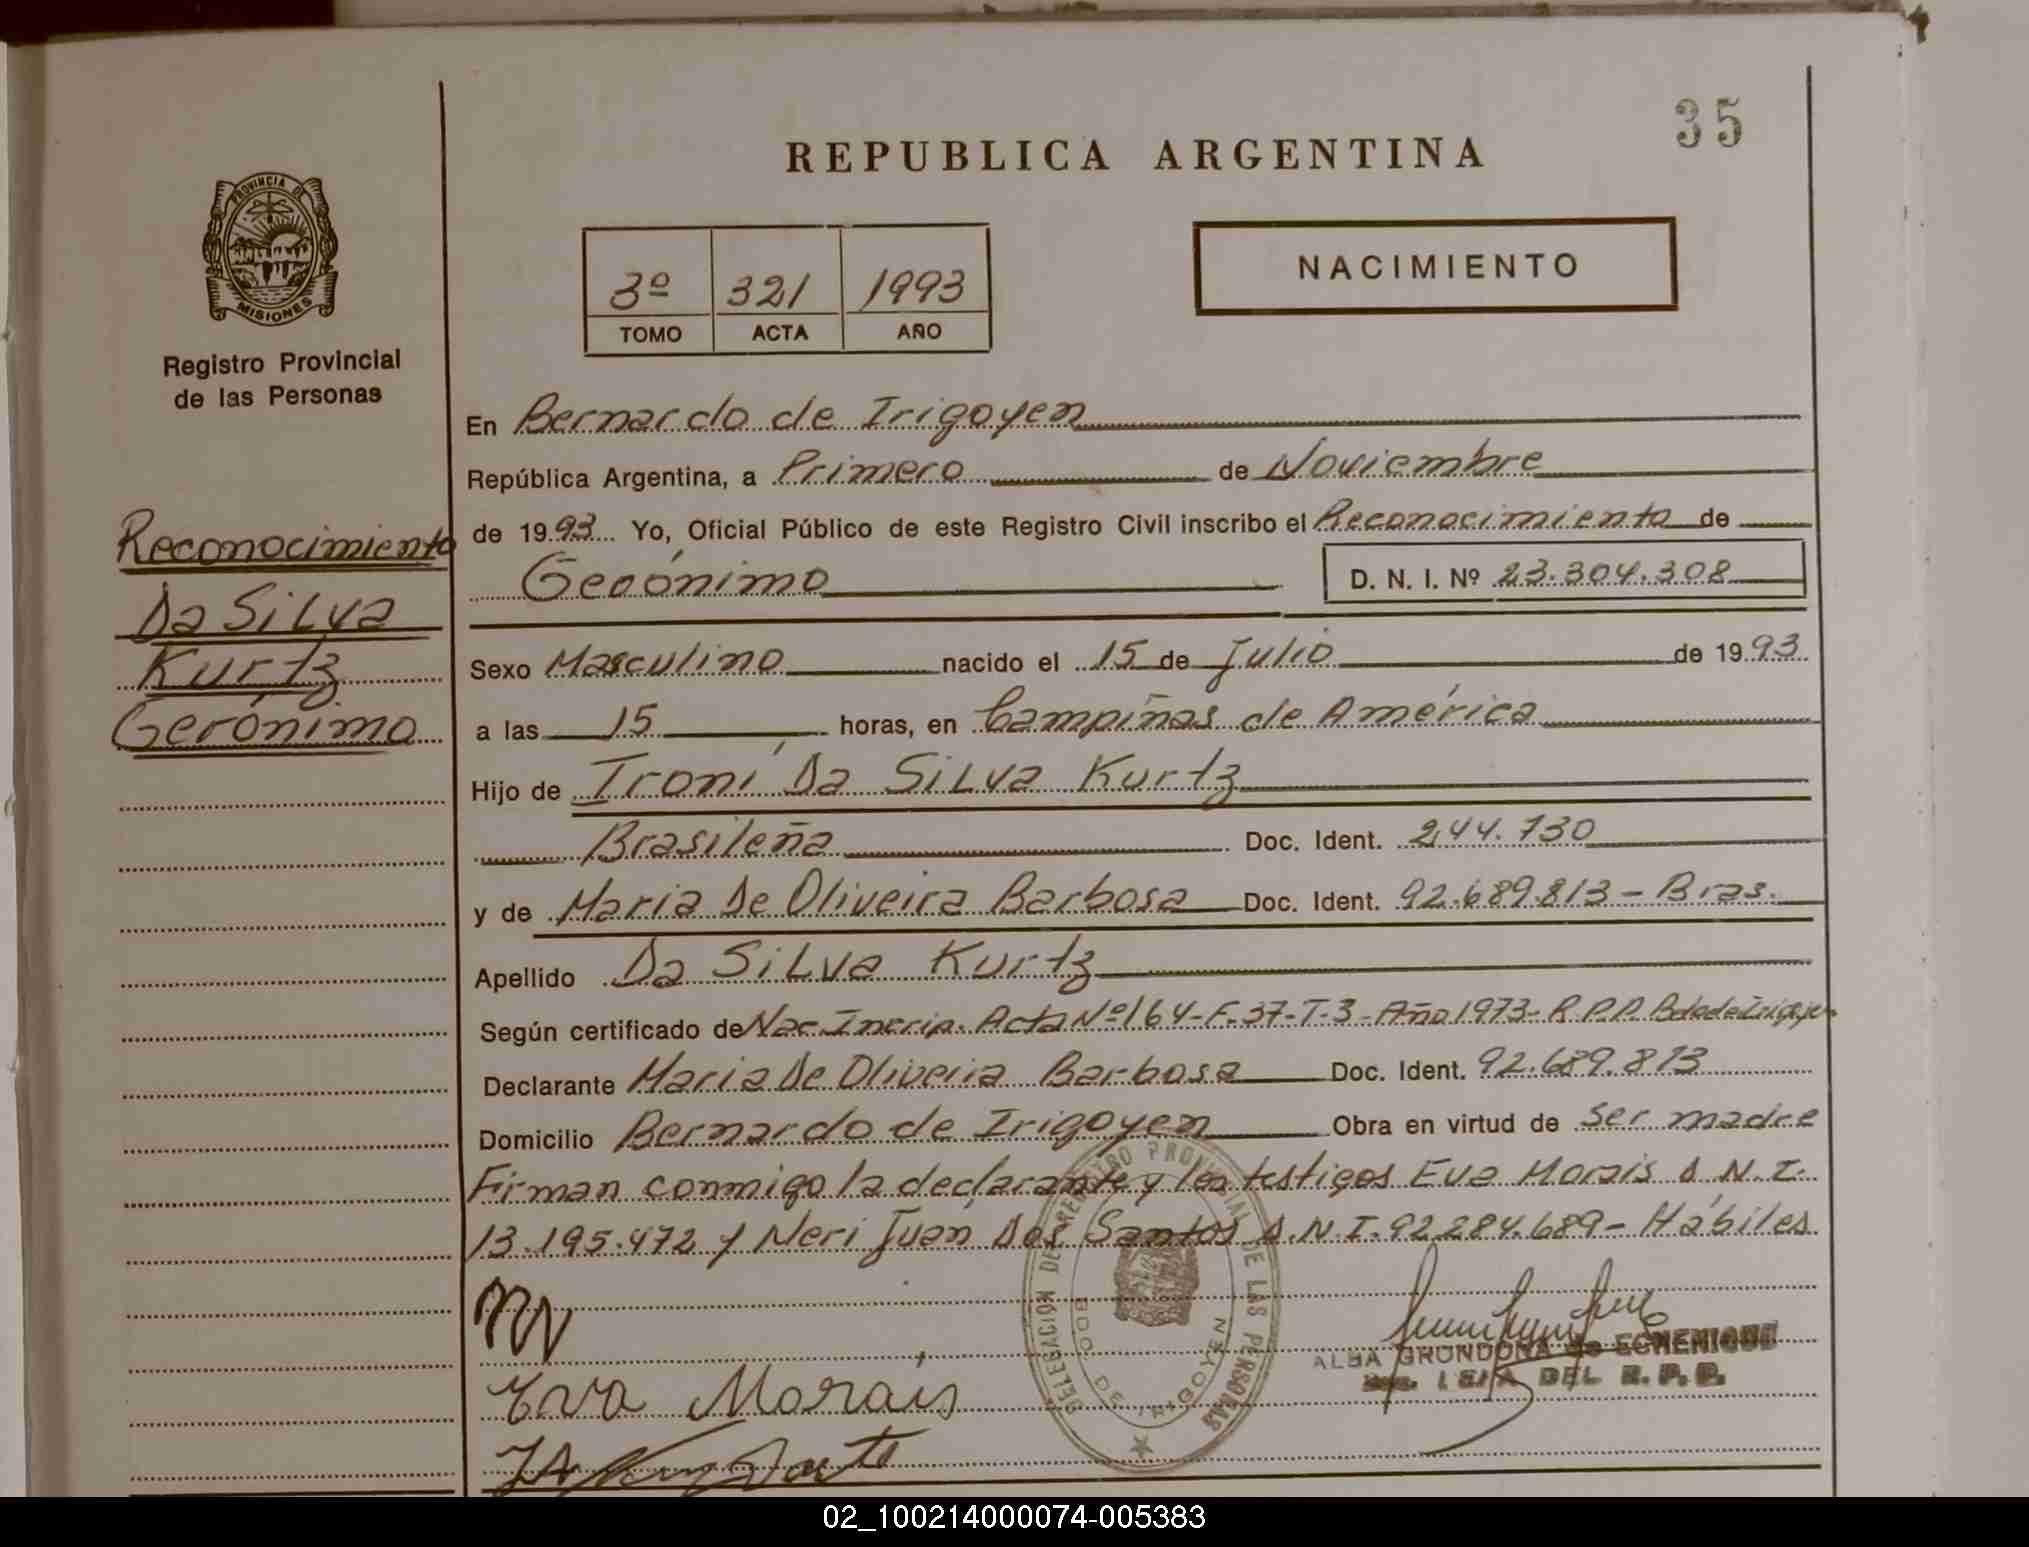 35
REPUBLICA ARGENTINA
PROVINCIA DE
MISIONES
Registro Provincial
de las Personas
3º 321 1993
TOMO ACTA AÑO
NACIMIENTO
Reconocimiento
Da Silva
Kurtz
Gerónimo
En Bernardo de Irigoyen
República Argentina, a Primero de Noviembre
de 1993 Yo, Oficial Público de este Registro Civil inscribo el Reconocimiento de
Gerónimo D. N. I. Nº 23.304.308
Sexo Masculino nacido el 15 de Julio de 1993
a las 15 horas, en Campiñas de América
Hijo de Troni Da Silva Kurtz
Brasileña Doc. Ident. 244.730
y de Maria De Oliveira Barbosa Doc. Ident. 92.689.813 - Bras.
Apellido Da Silva Kurtz
Según certificado de Nac. Inscrip. Acta Nº 164-F-37-T-3-Año 1973- R.P.P. Bdo de Irigoyen
Declarante Maria De Oliveria Barbosa Doc. Ident. 92.689.813
Domicilio Bernardo de Irigoyen Obra en virtud de ser madre
Firman conmigo la declarante y los testigos Eva Morais D.N.I.
13.195.472 y Neri Juan Dos Santos D.N.I. 92.284.689- Hábiles.
DELEGACION DEL REGISTRO PROVINCIAL DE LAS PERSONAS
BDO. DE IRIGOYEN
Eva Morais
ALBA GRONDONA de ECHENIQUE
DEL R. P. P.
02_100214000074-005383